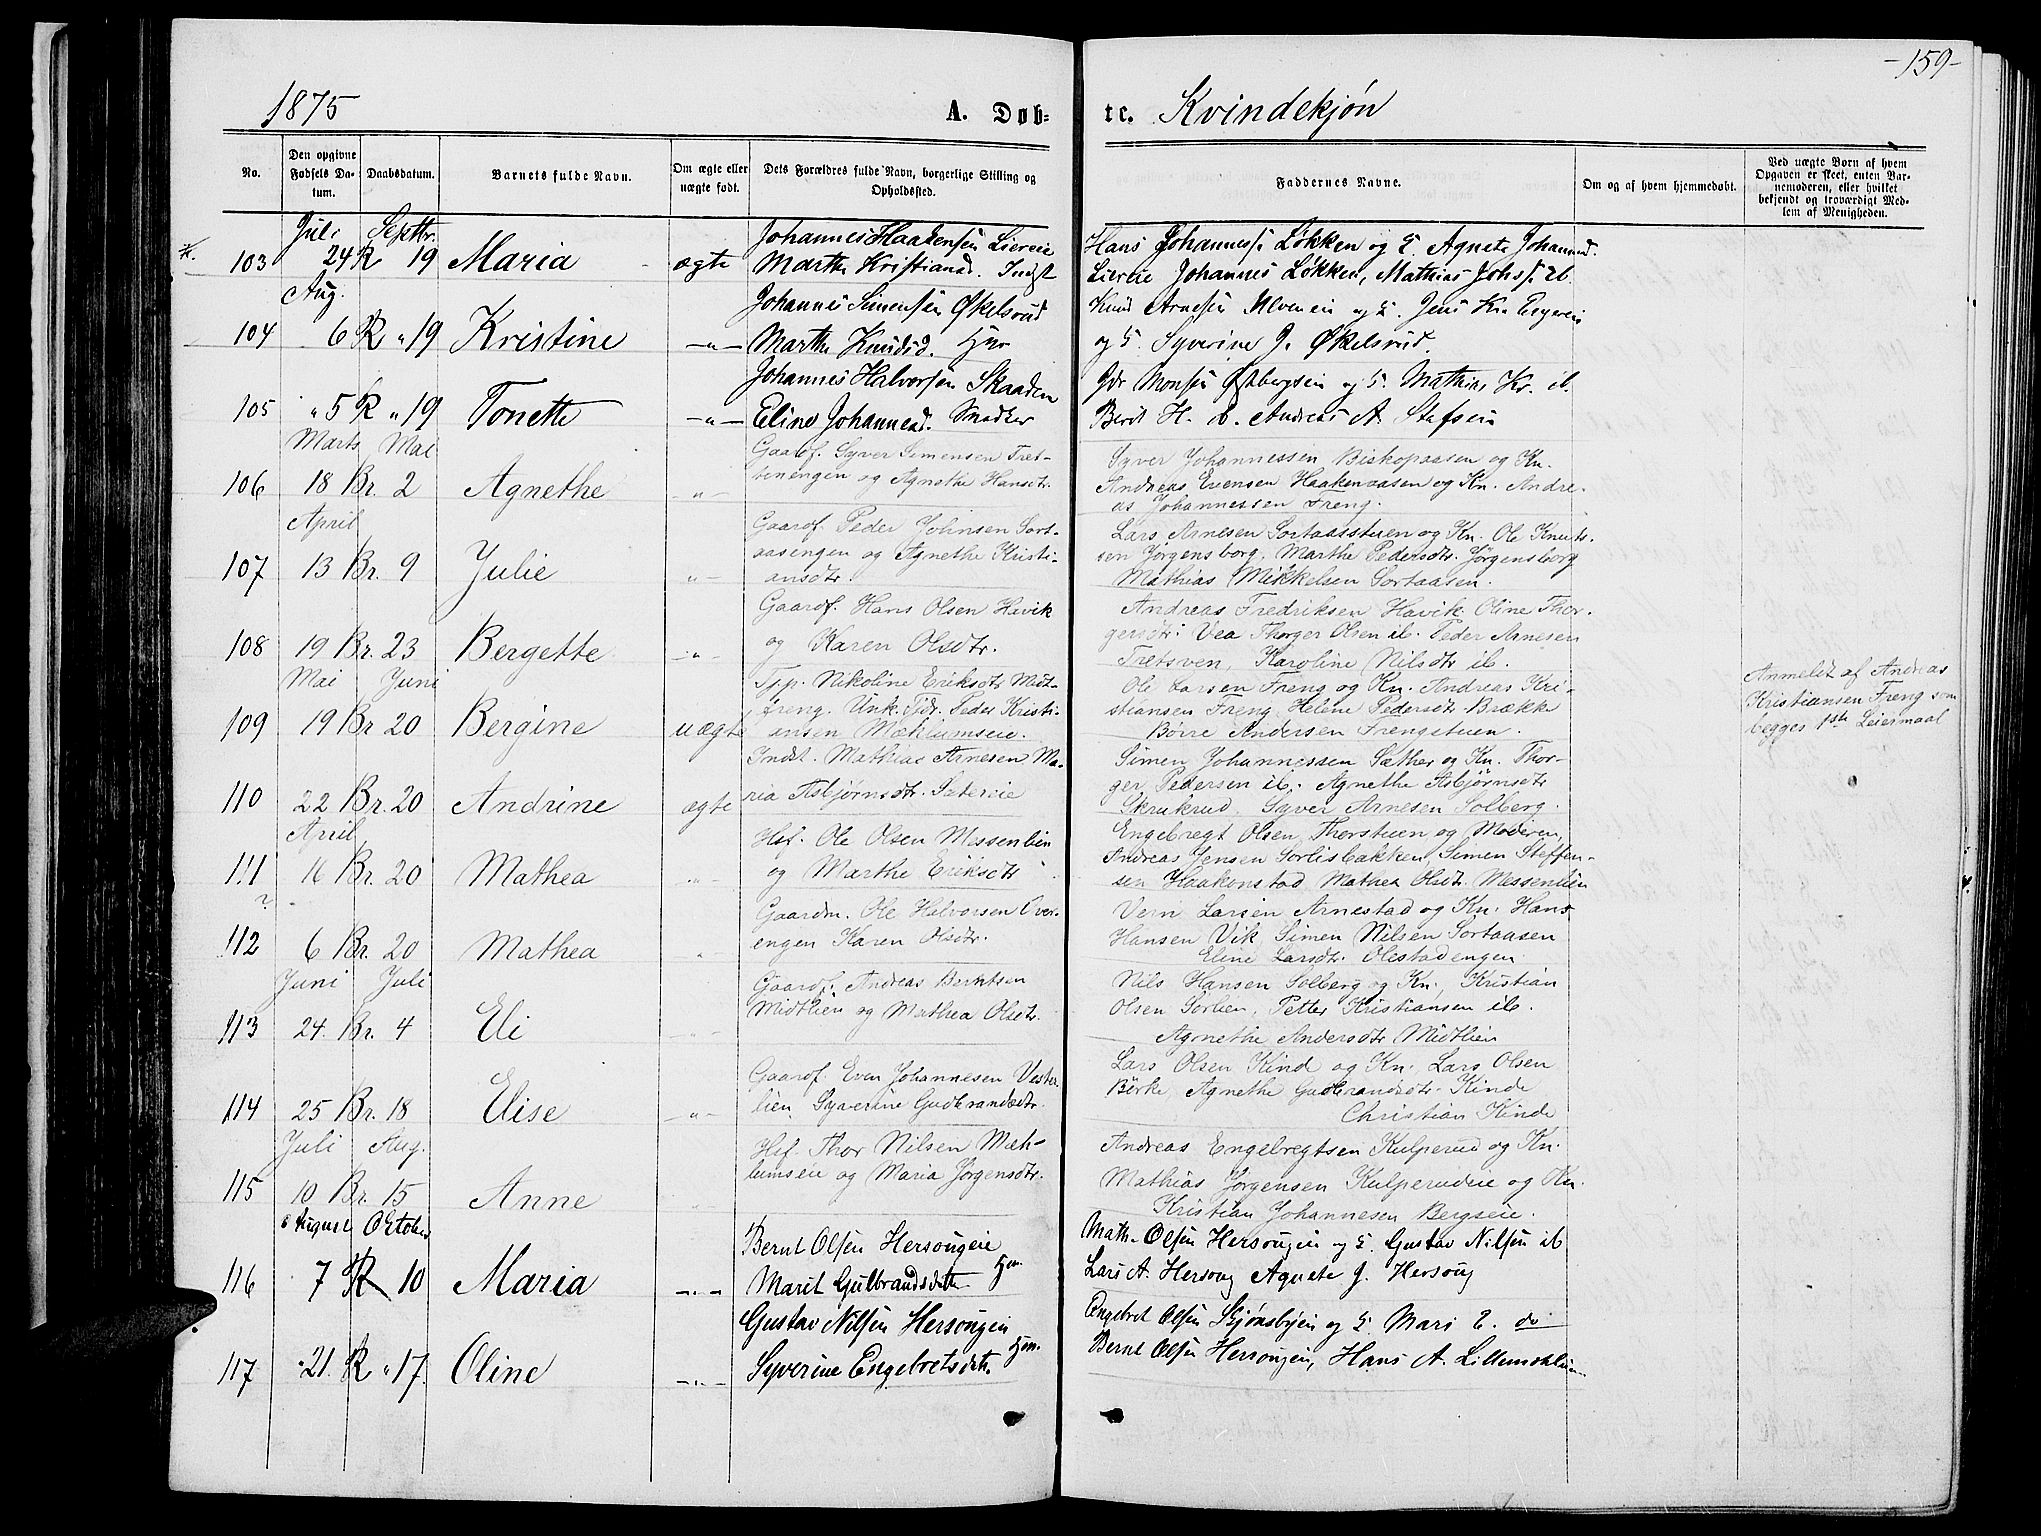 -159-
1875
A. Døb-
te. Kvindekjøn
No.
Den opgivne Fødsels Datum.
Daabsdatum.
Barnets fulde Navn.
Om ægte eller uægte født.
Dets Forældres fulde Navn, borgerlige Stilling og Opholdssted.
Faddernes Navne.
Om og af hvem hjemmedøbt.
Ved uægte Born af hvem Opgaven er skeet, enten Barnemoderen, eller hvilket bekjendt og troværdigt Medlem af Menigheden.
Juli Septbr.
103 24 R 19 Maria ægte
Johannes Haakensen Liereie
Marthe Kristiansd. Indst
Hans Johanness. Løkken og E. Agnete Johannsd.
Liereie Johannes Løkken, Mathias Johs. ib.
Aug.
104 6 R " 19 Kristine -"-
Johannes Simensen Økelsrud
Marthe Knudsd. Hus
Knud Arnesen og E. Jens Kr.
og E. Syverine J. Økelsrud.
105 " 5 R " 19 Tonette -"-
Johannes Halvorsen Skaaden
Eline Johannesd. Snedker
Monsen og E. Mathias Kr. ib.
Berit H. Andreas A.
Marts Mai
106 18 Br. 2 Agnethe -"-
Gaardf. Syver Simensen Tret-
tenengen og Agnethe Hansdtr.
Syver Johannessen Biskopaasen og Kn.
Andreas Evensen Haakenaasen og Kn. Andre-
as Johannessen Freng.
April
107 13 Br. 9 Julie "-
Gaardf. Peder Johnsen Sort-
aasengen og Agnethe Kristi-
ansdtr.
Lars Arnesen Sortaasstuen og Kn. Ole Knuts-
sen Jørgensborg, Marthe Pedersdtr. Jørgensborg
Mathias Mikkelsen Sortaasen.
108 19 Br. 23 Bergette -"-
Gaardf. Hans Olsen Hevik
og Karen Olsdtr.
Andreas Fredriksen Havik Oline Thor-
gersdtr. Vea Thorger Olsen ib. Peder Arnesen
Tretsven, Karoline Nilsdtr ib.
Mai Juni
109 19 Br 20 Bergine uægte
Tjp. Nikoline Eriksdtr Midt-
freng. Unk. Tjdr. Peder Kristi-
ansen Mæhlumseie.
Ole Larsen Freng og Kn. Andreas Kri-
stiansen Freng Helene Pedersdtr. Brække
Børre Andersen Frengstuen.
Anmeldt af Andreas
Kristiansen Freng som
begges 1ste Leiermaal
110 22 Br. 20 Andrine ægte
Indst. Mathias Arnesen Ma-
ria Asbjørnsdtr. Sætereie
Simen Johannessen Sæther og Kn. Thor-
ger Pedersen ib. Agnethe Asbjørnsdtr
Skrukrud, Syver Arnesen Solberg.
April
111 16 Br. 20 Mathea -"-
Hsf. Ole Olsen Messenlien
og Marthe Eriksdtr
Engebregt Olsen Thorstuen og Moderen,
Andreas Jensen Sorlisbakken, Simen Steffen-
sen Haakonstad Mathea Olsdtr. Messenlien
?
112 6 Br. 20 Mathea "-
Gaardm. Ole Halvorsen Over-
engen Karen Olsdtr.
Vern Larsen Arnestad og Kn. Hans
Hansen Vik, Simen Nilsen Sortaasen
Eline Larsdtr. Olestadengen.
Juni Juli
113 24. Br. 4 Eli "-
Gaardf. Andreas Berntsen
Midtlien og Mathea Olsdtr.
Nils Hansen Solberg og Kn., Kristian
Olsen Sorlien, Petter Kristiansen ib.
Agnethe Andersdtr Midtlien
114 25 Br. 18 Elise "-
Gaardf. Even Johannesen Vester-
lien, Syverine Gudbrandsdtr.
Lars Olsen Kind og Kn., Lars Olsen
Børke, Agnethe Gudbrandsdtr. Kinde
Christian Kinde
Juli Aug.
115 10 Br. 15 Anne "-
Hsf. Thor Nilsen Mæh-
lumseie og Maria Jørgensdtr.
Andreas Engebregtsen Kulperud og Kn.
Mathias Jørgensen Kulperudeie og Kn.
Kristian Johannesen Bergseie.
August October
116 7 R 10 Maria -"-
Bernt Olsen Hersougeie
Marit Gulbrandsdatter Hm.
Math. Olsen Hersougeie og E. Gustav Nilsen ib
Lars A. Hersoug Agnete J. Hersoug
117 21. R " 17. Oline -"-
Gustav Nilsen Hersougeie
Syverine Engebretsdtr. Hm.
Engebret Olsen Skjønsbyen og E. Mari E. do
Bernt Olsen Hersougeie, Hans A.